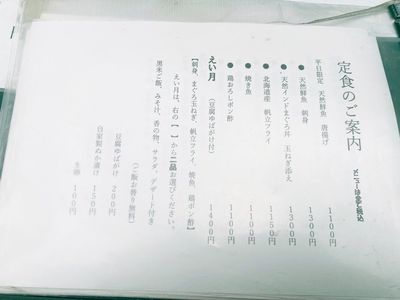 定食のご案内
メニューはすべて税込
平日限定 天然鮮魚 唐揚げ 1100円
● 天然鮮魚 刺身 1300円
● 天然インドまぐろ丼 玉ねぎ添え 1300円
● 北海道産 帆立フライ 1150円
● 焼き魚 1100円
● 鶏おろしポン酢 1100円
えい月 (豆腐ゆばがけ付) 1400円
【刺身、まぐろ玉ねぎ、帆立フライ、焼魚、鶏ポン酢】
えい月は、右の【 】から二品お選びください。
黒米ご飯、みそ汁、香の物、サラダ、デザート付き
(ご飯お替り無料)
豆腐ゆばがけ 200円
自家製ぬか漬け 150円
生卵 100円